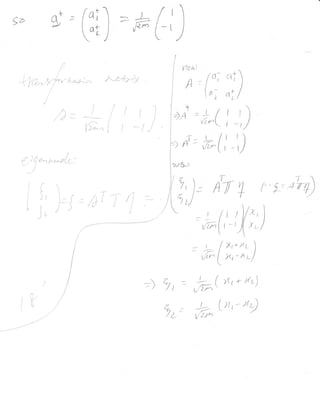 so a⁺ = (a₁⁺ a₂⁺) = 1/√2m (1 -1)
transformation matrix.
A = 1/√2m (1 1 1 -1).
eigenmode:
(ξ₁ ξ₂) = ξ = Aᵀ T η =
18
now
A = (a₁⁻ a₁⁺ a₂⁻ a₂⁺)
⇒ A = 1/√2m (1 1 1 -1)
⇒ Aᵀ = 1/√2m (1 1 1 -1)
now
(ξ₁ ξ₂) = Aᵀ T η
= 1/√2m (1 1 1 -1)(x₁ x₂)
= 1/√2m (x₁+x₂ x₁-x₂)
⇒ ξ₁ = 1/√2m (x₁+x₂)
ξ₂ = 1/√2m (x₁-x₂)